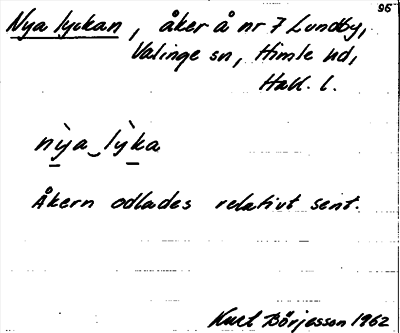 96
Nya lyckan, åker å nr 7 Lundby,
Valinge sn, Himle hd,
Hall. l.
nỳa lỳka
Åkern odlades relativt sent.
Kurt Börjesson 1962